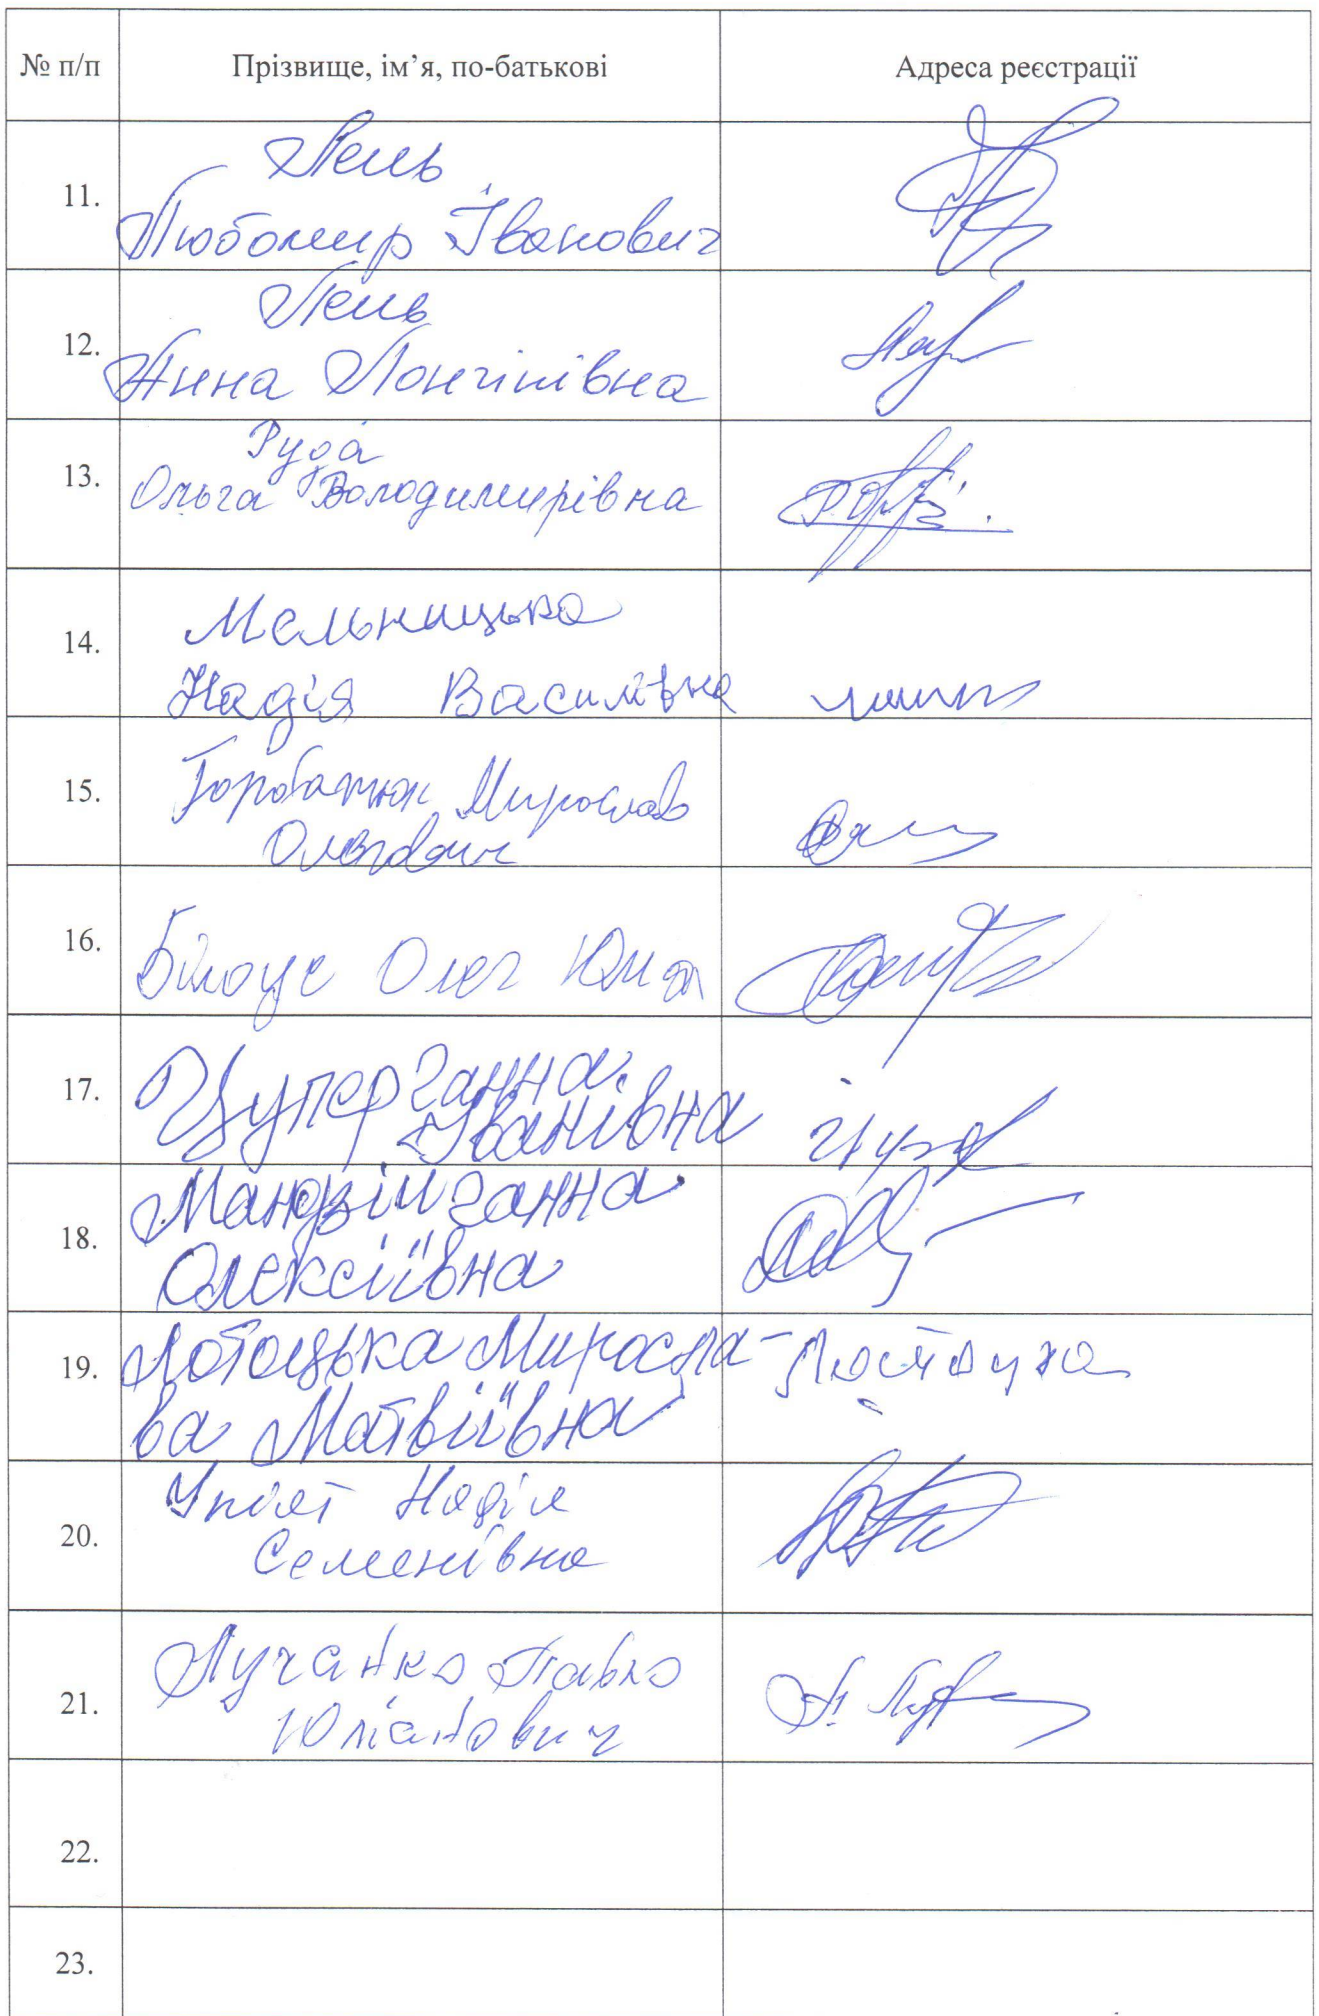 № п/п Прізвище, ім’я, по-батькові Адреса реєстрації
11.
Лень
Любомир Іванович
12.
Лень
Анна Лонгінівна
13.
Руда
Ольга Володимирівна
14.
Мельницька
Надія Василівна
15.
Горобатюк Мирослав
Олегович
16.
Білоус Олег
17.
Цупер Ганна
Іванівна
18.
Мандзій Ганна
Олексіївна
19.
Лотоцька Миросла-
ва Матвіївна
20.
Надія
Семенівна
21.
Лучанко Павло
Юліанович
22.
23.